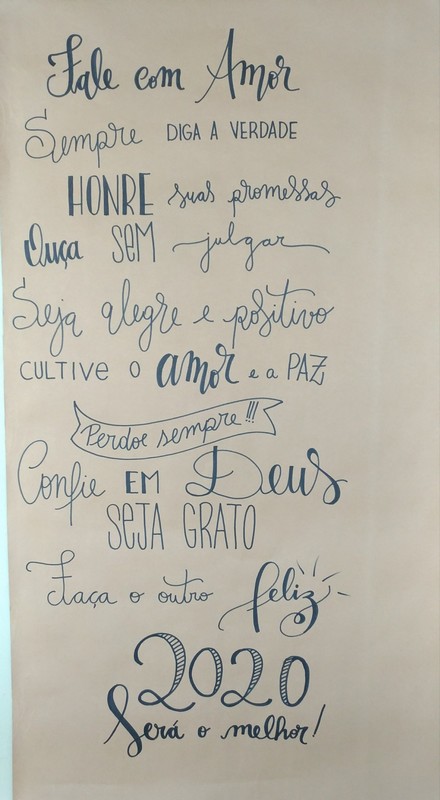 Fale com Amor
Sempre DIGA A VERDADE
HONRE suas promessas
Ouça SEM julgar
Seja alegre e positivo
CULTIVE O amor e a PAZ
Perdoe sempre!!!
Confie EM Deus
SEJA GRATO
Faça o outro feliz
2020
Será o melhor!